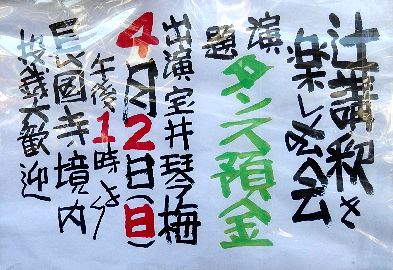 辻講釈を
楽しむ会
演題
タンス預金
出演宝井琴梅
4月2日(日)
午後1時より
長國寺境内
投銭大歓迎